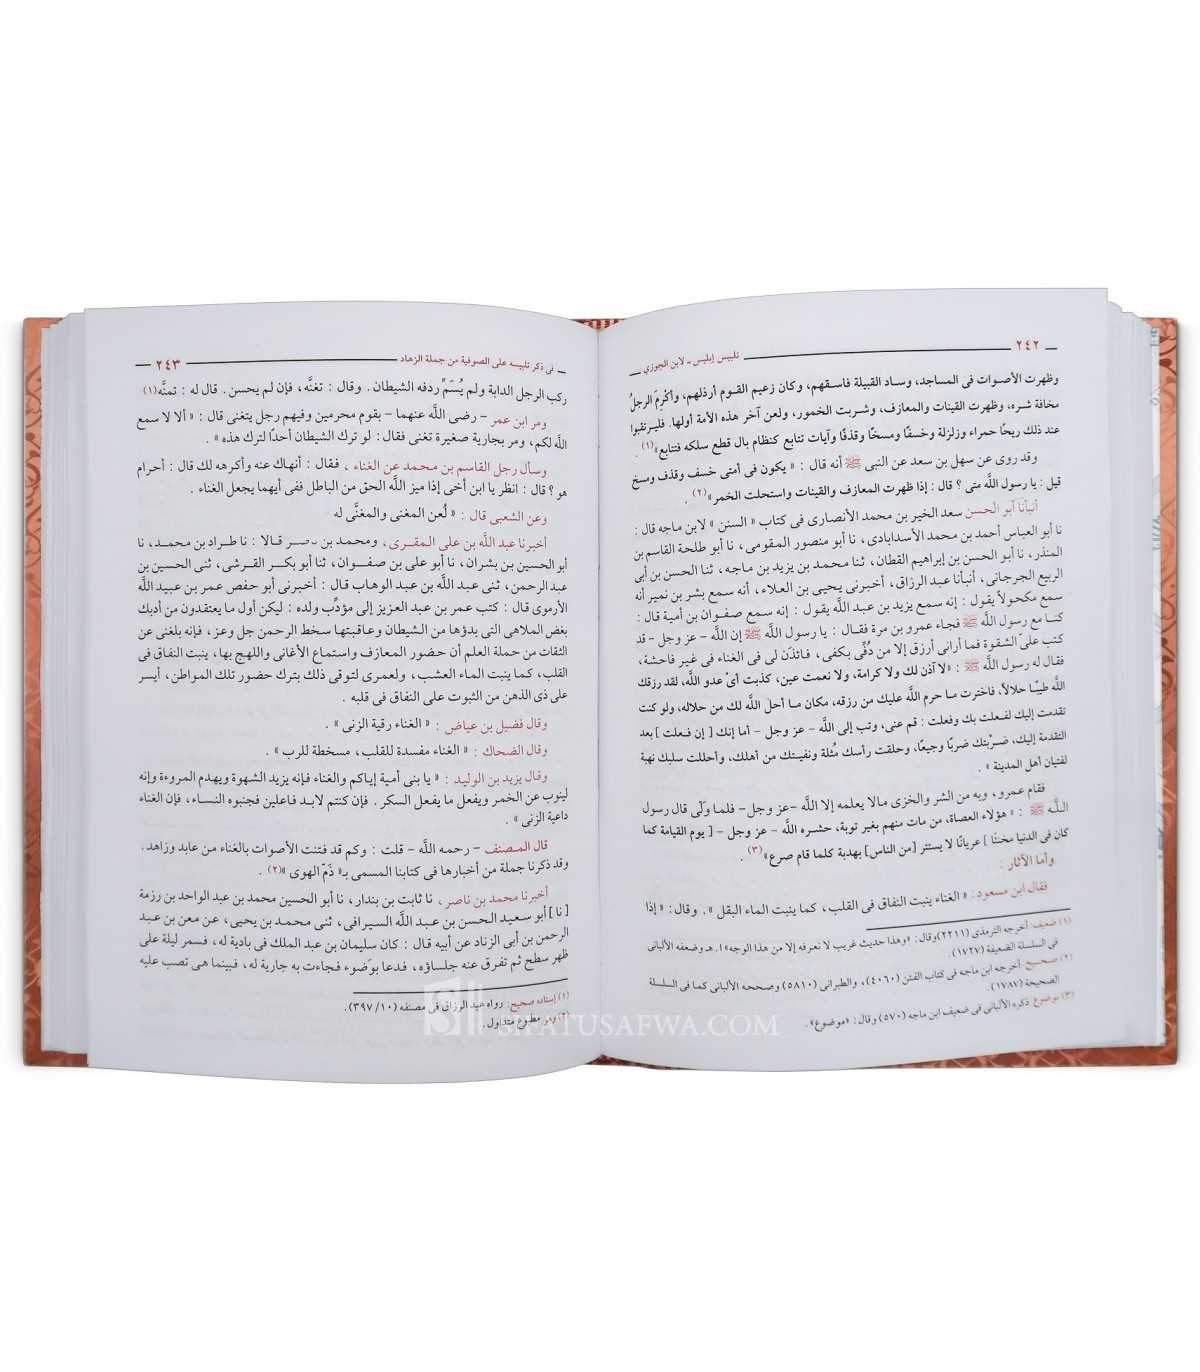 ٢٤٢ تلبيس إبليس ــ لابن الجوزي
وظهرت الأصوات فى المساجد، وساد القبيلة فاسقهم، وكان زعيم القوم أرذلهم، وأكْرِمَ الرجلُ
مخافة شره، وظهرت القينات والمعازف، وشربت الخمور، ولعن آخر هذه الأمة أولها. فليرتقبوا
عند ذلك ريحًا حمراء وزلزلة وخسفًا ومسخًا وقذفًا وآيات تتابع كنظام بال قطع سلكه فتتابع»(١) .
وقد روى عن سهل بن سعد عن النبى ﷺ أنه قال : « يكون فى أمتى خسف وقذف ومسخ
قيل : يا رسول اللَّه متى ؟ قال : إذا ظهرت المعازف والقينات واستحلت الخمر»(٢) .
أنبأنا أبو الحسن سعد الخير بن محمد الأنصارى فى كتاب « السنن » لابن ماجه قال :
نا أبو العباس أحمد بن محمد الأسدابادى، نا أبو منصور المقومى، نا أبو طلحة القاسم بن
المنذر، نا أبو الحسن بن إبراهيم القطان، ثنا محمد بن يزيد بن ماجه، ثنا الحسن بن أبى
الربيع الجرجانى، أنبأنا عبد الرزاق، أخبرنى يحيى بن العلاء، أنه سمع بشر بن نمير أنه
سمع مكحولاً يقول : إنه سمع يزيد بن عبد اللَّه يقول : إنه سمع صفوان بن أمية قال :
كنا مع رسول اللَّه ﷺ فجاء عمرو بن مرة فقال : يا رسول اللَّه ﷺ إن اللَّه – عز وجل – قد
كتب علىّ الشقوة فما أرانى أرزق إلا من دُفِّى بكفى، فائذن لى فى الغناء فى غير فاحشة،
فقال له رسول اللَّه ﷺ : «لا آذن لك ولا كرامة، ولا نعمت عين، كذبت أىْ عدو اللَّه، لقد رزقك
اللَّه طيبًا حلالاً، فاخترت ما حرم اللَّه عليك من رزقه، مكان ما أحل اللَّه لك من حلاله، ولو كنت
تقدمت إليك لفعلت بك وفعلت : قم عنى، وتب إلى اللَّه – عز وجل – أما إنك [ إن فعلت ] بعد
التقدمة إليك، ضربْتك ضربًا وجيعًا، وحلقت رأسك مُثلة ونفيتك من أهلك، وأحللت سلبك نهبة
لفتيان أهل المدينة » .
فقام عمرو، وبه من الشر والخزى مالا يعلمه إلا اللَّه –عز وجل– فلما ولّى قال رسول
اللَّه ﷺ : « هؤلاء العصاة، من مات منهم بغير توبة، حشره اللَّه – عز وجل – [ يوم القيامة كما
كان فى الدنيا مخنثًا ] عريانًا لا يستتر [من الناس] بهدبة كلما قام صرع»(٣) .
وأما الآثار :
فقال ابن مسعود : « الغناء ينبت النفاق فى القلب، كما ينبت الماء البقل » . وقال : « إذا
(١) ضعيف: أخرجه الترمذى (٢٢١١)وقال : «وهذا حديث غريب لا نعرفه إلا من هذا الوجه»ا. هـ وضعفه الألبانى
فى السلسلة الضعيفة (١٧٢٧).
(٢) صحيح أخرجه ابن ماجه فى كتاب الفتن (٤٠٦٠)، والطبرانى (٥٨١٠) وصححه الألبانى كما فى السلسلة
الصحيحة (١٧٨٧).
(٣) موضوع ذكره الألبانى فى ضعيف ابن ماجه (٥٧٠) وقال: «موضوع».
فى ذكر تلبيسه على الصوفية من جملة الزهاد ٢٤٣
ركب الرجل الدابة ولم يُسَمِّ ردفه الشيطان . وقال : تغنَّه، فإن لم يحسن . قال له : تمنَّه(١)
ومر ابن عمر – رضى اللَّه عنهما – بقوم محرمين وفيهم رجل يتغنى قال : « ألا لا سمع
اللَّه لكم، ومر بجارية صغيرة تغنى فقال : لو ترك الشيطان أحدًا لترك هذه » .
وسأل رجل القاسم بن محمد عن الغناء ، فقال : أنهاك عنه وأكرهه لك قال : أحرام
هو ؟ قال : انظر يا ابن أخى إذا ميز اللَّه الحق من الباطل ففى أيهما يجعل الغناء .
وعن الشعبى قال : « لُعن المغنى والمغنَّى له
أخبرنا عبد اللَّه بن على المقرى، ومحمد بن قالا : نا طراد بن محمد، نا
أبو الحسين بن بشران، نا أبو على بن صفوان، ثنا أبو بكر القرشى، ثنى الحسين بن
عبد الرحمن، ثنى عبد اللَّه بن عبد الوهاب قال : أخبرنى أبو حفص عمر بن عبيد اللَّه
الأرموى قال : كتب عمر بن عبد العزيز إلى مؤدِّب ولده : ليكن أول ما يعتقدون من أدبك
بغض الملاهى التى بدؤها من الشيطان وعاقبتها سخط الرحمن جل وعز، فإنه بلغنى عن
الثقات من حملة العلم أن حضور المعازف واستماع الأغانى واللهج بها، ينبت النفاق فى
القلب، كما ينبت الماء العشب، ولعمرى لتوقى ذلك بترك حضور تلك المواطن، أيسر
على ذى الذهن من الثبوت على النفاق فى قلبه .
وقال فضيل بن عياض : « الغناء رقية الزنى » .
وقال الضحاك : « الغناء مفسدة للقلب، مسخطة للرب » .
وقال يزيد بن الوليد : « يا بنى أمية إياكم والغناء فإنه يزيد الشهوة ويهدم المروءة وإنه
لينوب عن الخمر ويفعل ما يفعل السكر . فإن كنتم لابد فاعلين فجنبوه النساء، فإن الغناء
داعية الزنى » .
قال المصنف – رحمه اللَّه – قلت : وكم قد فتنت الأصوات بالغناء من عابد وزاهد.
وقد ذكرنا جملة من أخبارها فى كتابنا المسمى بـ« ذَمّ الهوى »(٢) .
أخبرنا محمد بن ناصر ، نا ثابت بن بندار، نا أبو الحسين محمد بن عبد الواحد بن رزمة
[ نا ] أبو سعيد الحسن بن عبد اللَّه السيرافى، ثنى محمد بن يحيى، عن معن بن عبد
الرحمن بن أبى الزناد عن أبيه قال : كان سليمان بن عبد الملك فى بادية له، فسمر ليلة على
ظهر سطح ثم تفرق عنه جلساؤه، فدعا بوَضوء فجاءت به جارية له، فبينما هى تصب عليه
(١) إسناده صحيح: رواه عبد الرزاق فى مصنفه (٣٩٧/١٠).
(٢) وهو مطبوع متداول.
SIFATUSAFWA.COM